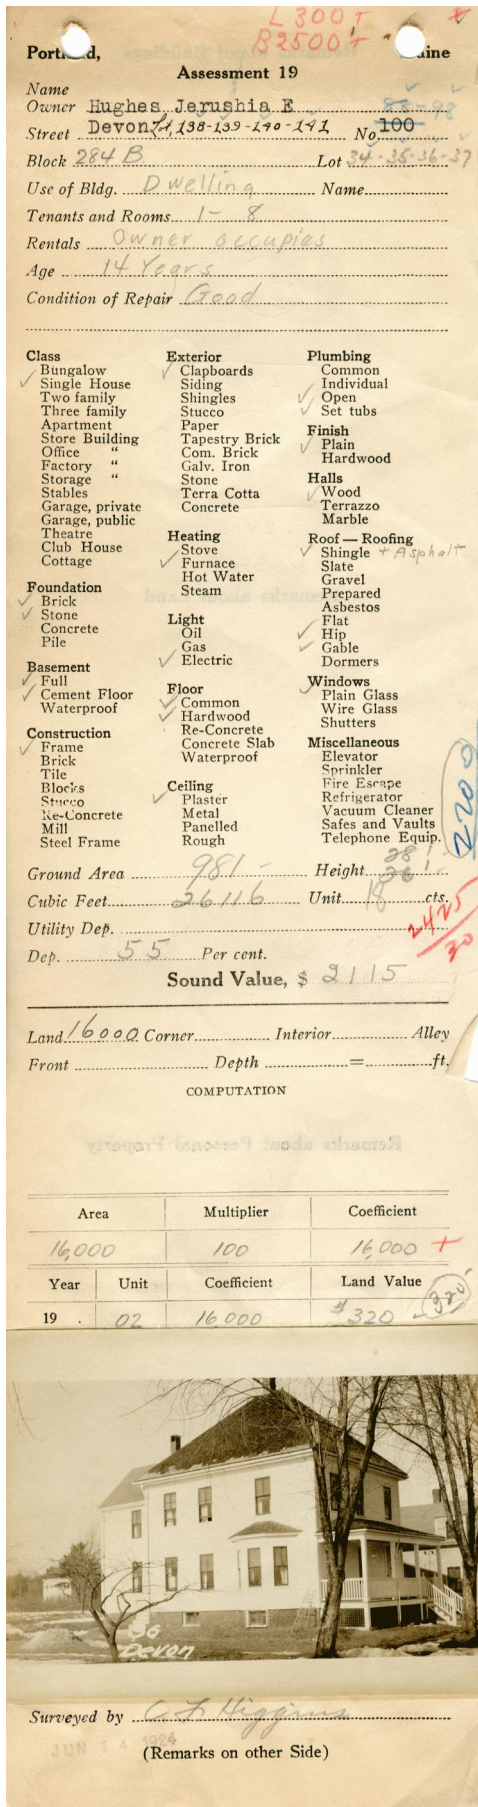 L 300 T
B 2500 T
Portland, Maine
Assessment 19
Name
Owner Hughes Jerushia E 88-98
Street Devon Lt, 138-139-140-141 No 100
Block 284 B. Lot 34-35-36-37
Use of Bldg. Dwelling Name
Tenants and Rooms 1- 8
Rentals Owner occupies
Age 14 Years
Condition of Repair Good
Class
✓ Bungalow
Single House
Two family
Three family
Apartment
Store Building
Office "
Factory "
Storage "
Stables
Garage, private
Garage, public
Theatre
Club House
Cottage
Foundation
✓ Brick
✓ Stone
Concrete
Pile
Basement
✓ Full
✓ Cement Floor
Waterproof
Construction
✓ Frame
Brick
Tile
Blocks
Stucco
Re-Concrete
Mill
Steel Frame
Exterior
✓ Clapboards
Siding
Shingles
Stucco
Paper
Tapestry Brick
Com. Brick
Galv. Iron
Stone
Terra Cotta
Concrete
Heating
Stove
✓ Furnace
Hot Water
Steam
Light
Oil
Gas
✓ Electric
Floor
✓ Common
✓ Hardwood
Re-Concrete
Concrete Slab
Waterproof
Ceiling
✓ Plaster
Metal
Panelled
Rough
Plumbing
Common
Individual
✓ Open
✓ Set tubs
Finish
✓ Plain
Hardwood
Halls
✓ Wood
Terrazzo
Marble
Roof — Roofing
✓ Shingle + Asphalt
Slate
Gravel
Prepared
Asbestos
Flat
✓ Hip
✓ Gable
Dormers
Windows
✓ Plain Glass
Wire Glass
Shutters
Miscellaneous
Elevator
Sprinkler
Fire Escape
Refrigerator
Vacuum Cleaner
Safes and Vaults
Telephone Equip.
2200
28'
Ground Area 981- Height 26'
Cubic Feet 26116 Unit 18 cts.
2425
30
Utility Dep.
Dep. 55 Per cent.
Sound Value, $ 2115
Land 16000 Corner Interior Alley
Front Depth = ft.
COMPUTATION
Area Multiplier Coefficient
16,000 100 16,000 +
Year Unit Coefficient Land Value
19 . 02 16000 $320 - 320
36
Devon
Surveyed by C F Higgins
JUN 14 1924
(Remarks on other Side)